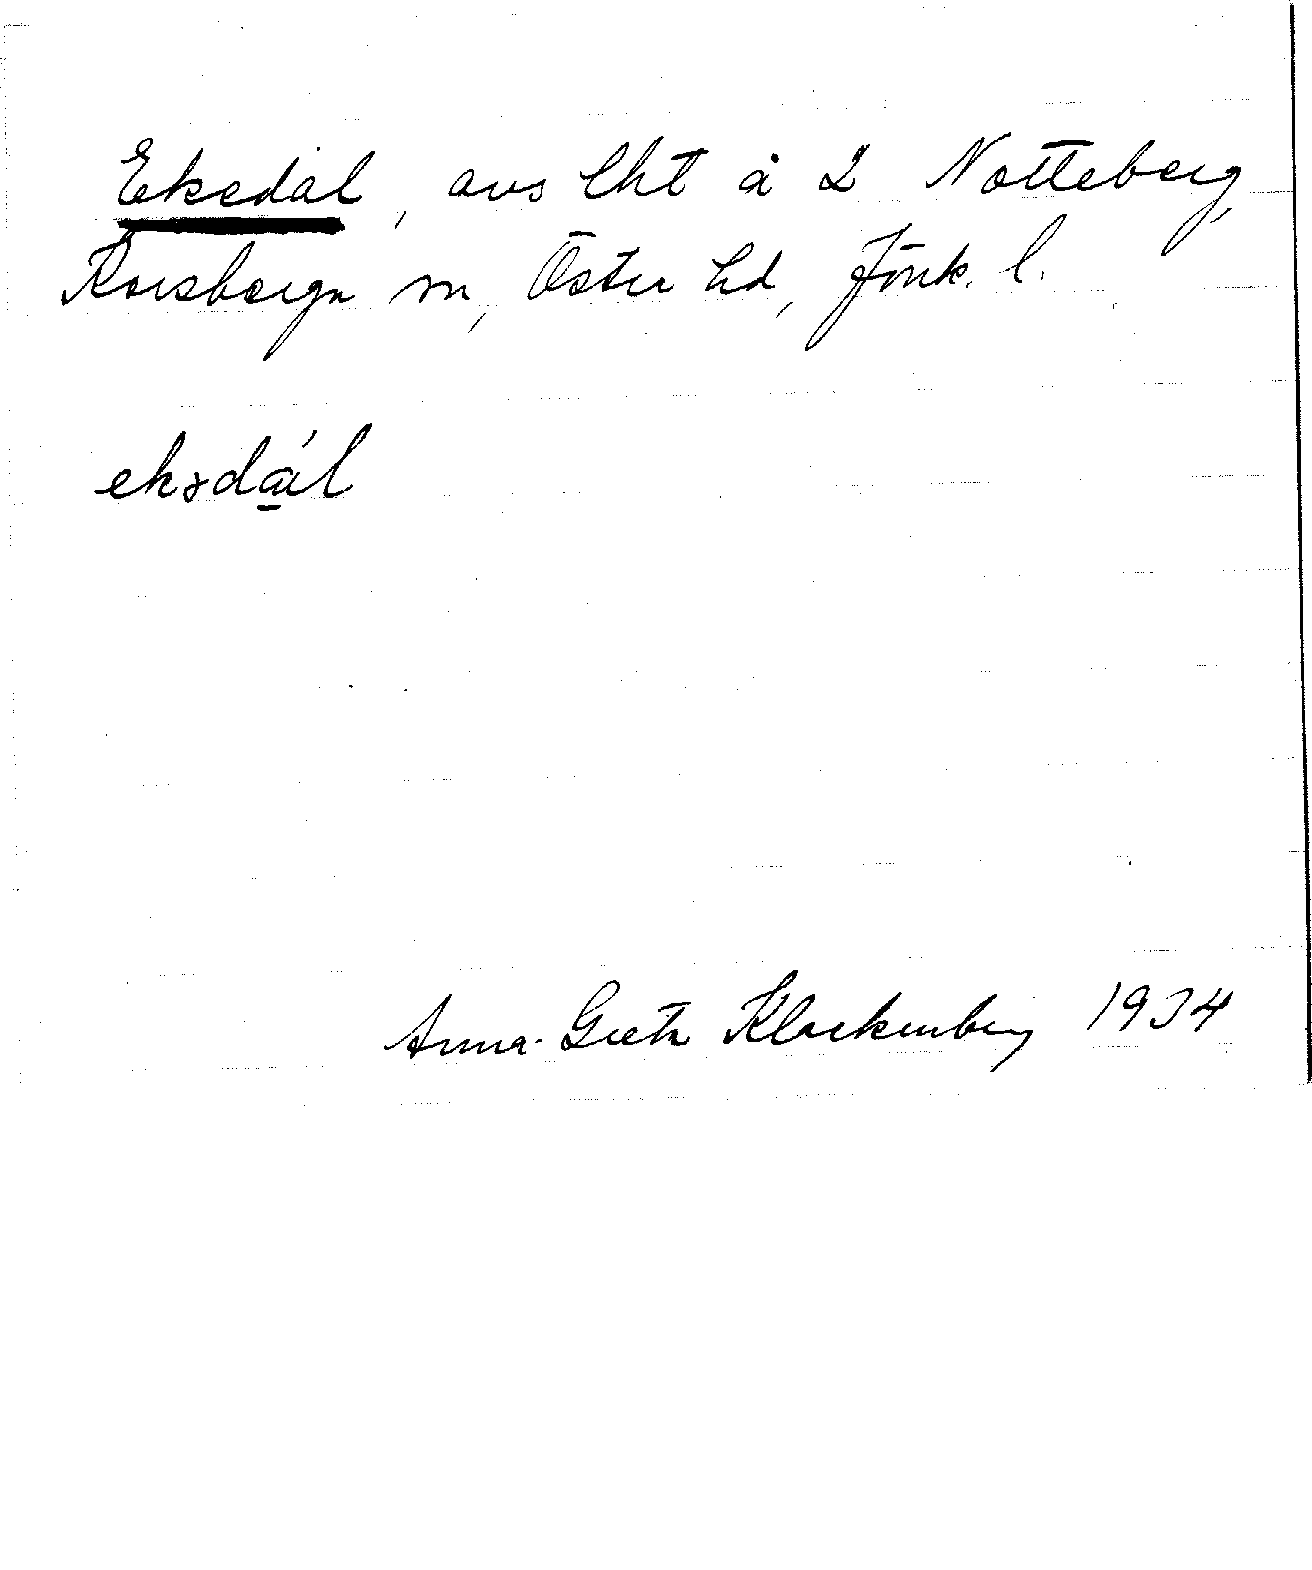 Ekedal, avs lht å 2 Notteberg,
Korsberga sn, Östra hd, Jönk. l.
ekədál
Anna-Greta Klockenberg 1934